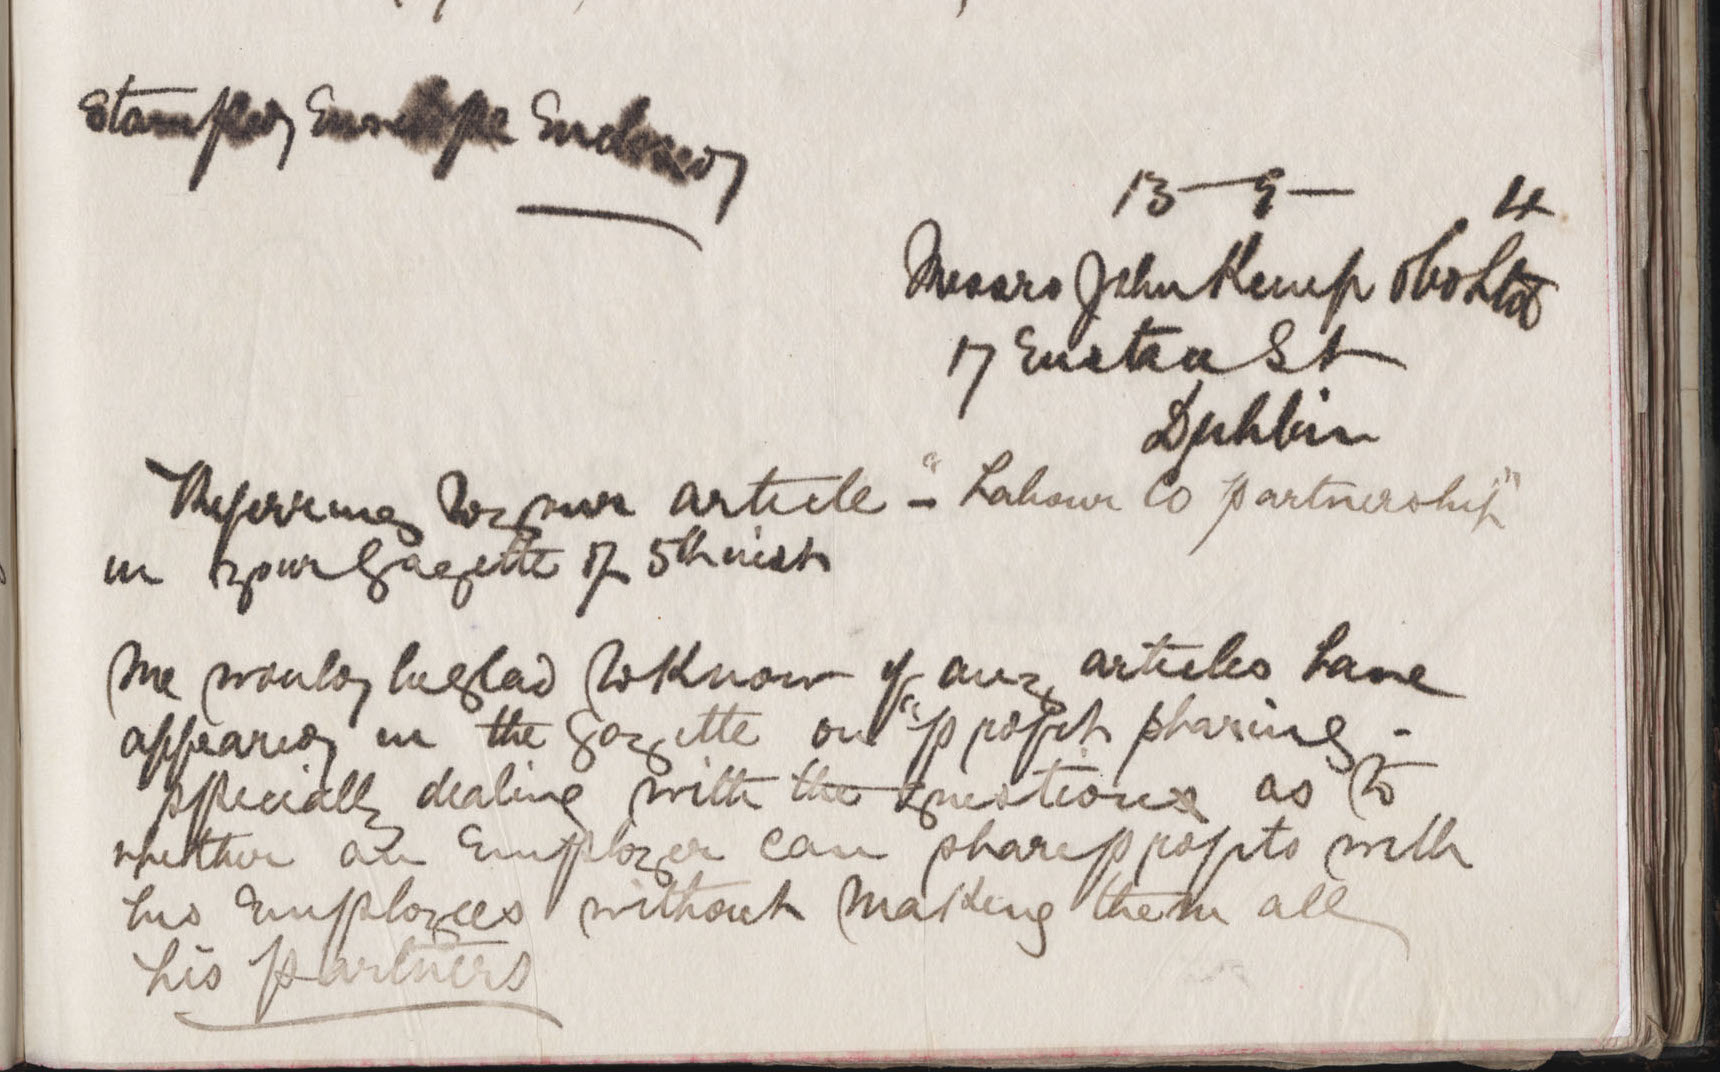 Stamped Envelope Enclosed
13 - 9 - 4
Messrs John Kemp & Co Ltd
17 Eustace St
Dublin
Referring to your article - "Labour Co partnership"
in your Gazette of 5th inst
We would be glad to know if any articles have
appeared in the Gazette on "profit sharing -
specially dealing with the questions as to
whether an Employer can share profits with
his Employees without making them all
his partners